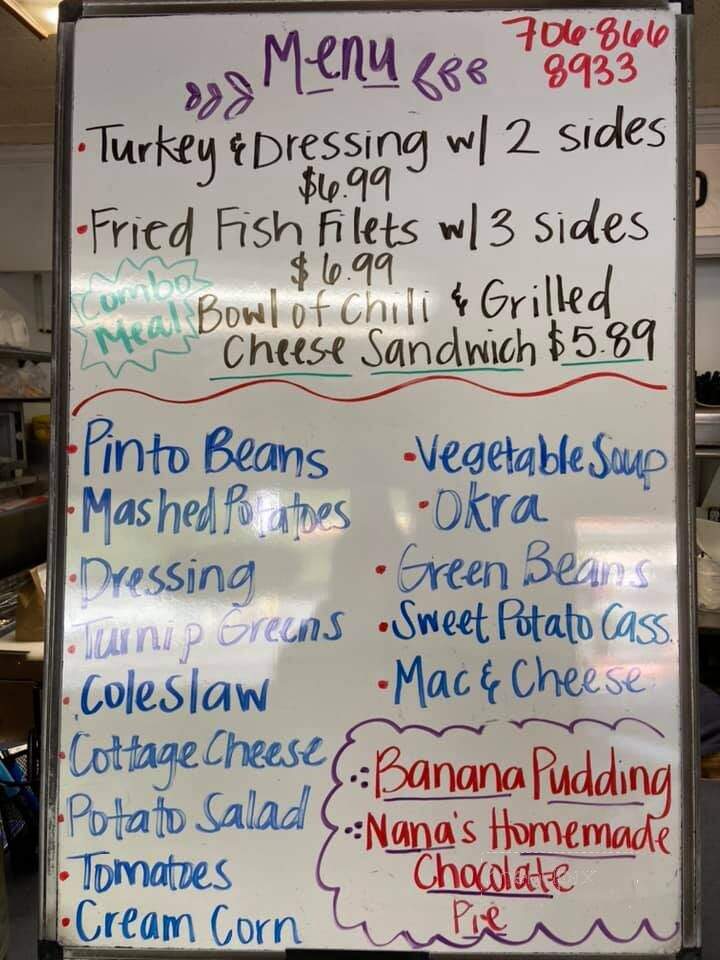 Menu
706-866
8933
Turkey & Dressing w/ 2 sides
$6.99
Fried Fish Filets w/ 3 sides
$6.99
Combo
Meal
Bowl of Chili & Grilled
Cheese Sandwich $5.89
Pinto Beans
Mashed Potatoes
Dressing
Turnip Greens
Coleslaw
Cottage Cheese
Potato Salad
Tomatoes
Cream Corn
Vegetable Soup
Okra
Green Beans
Sweet Potato Cass.
Mac & Cheese
Banana Pudding
Nana's Homemade
Chocolate
Pie